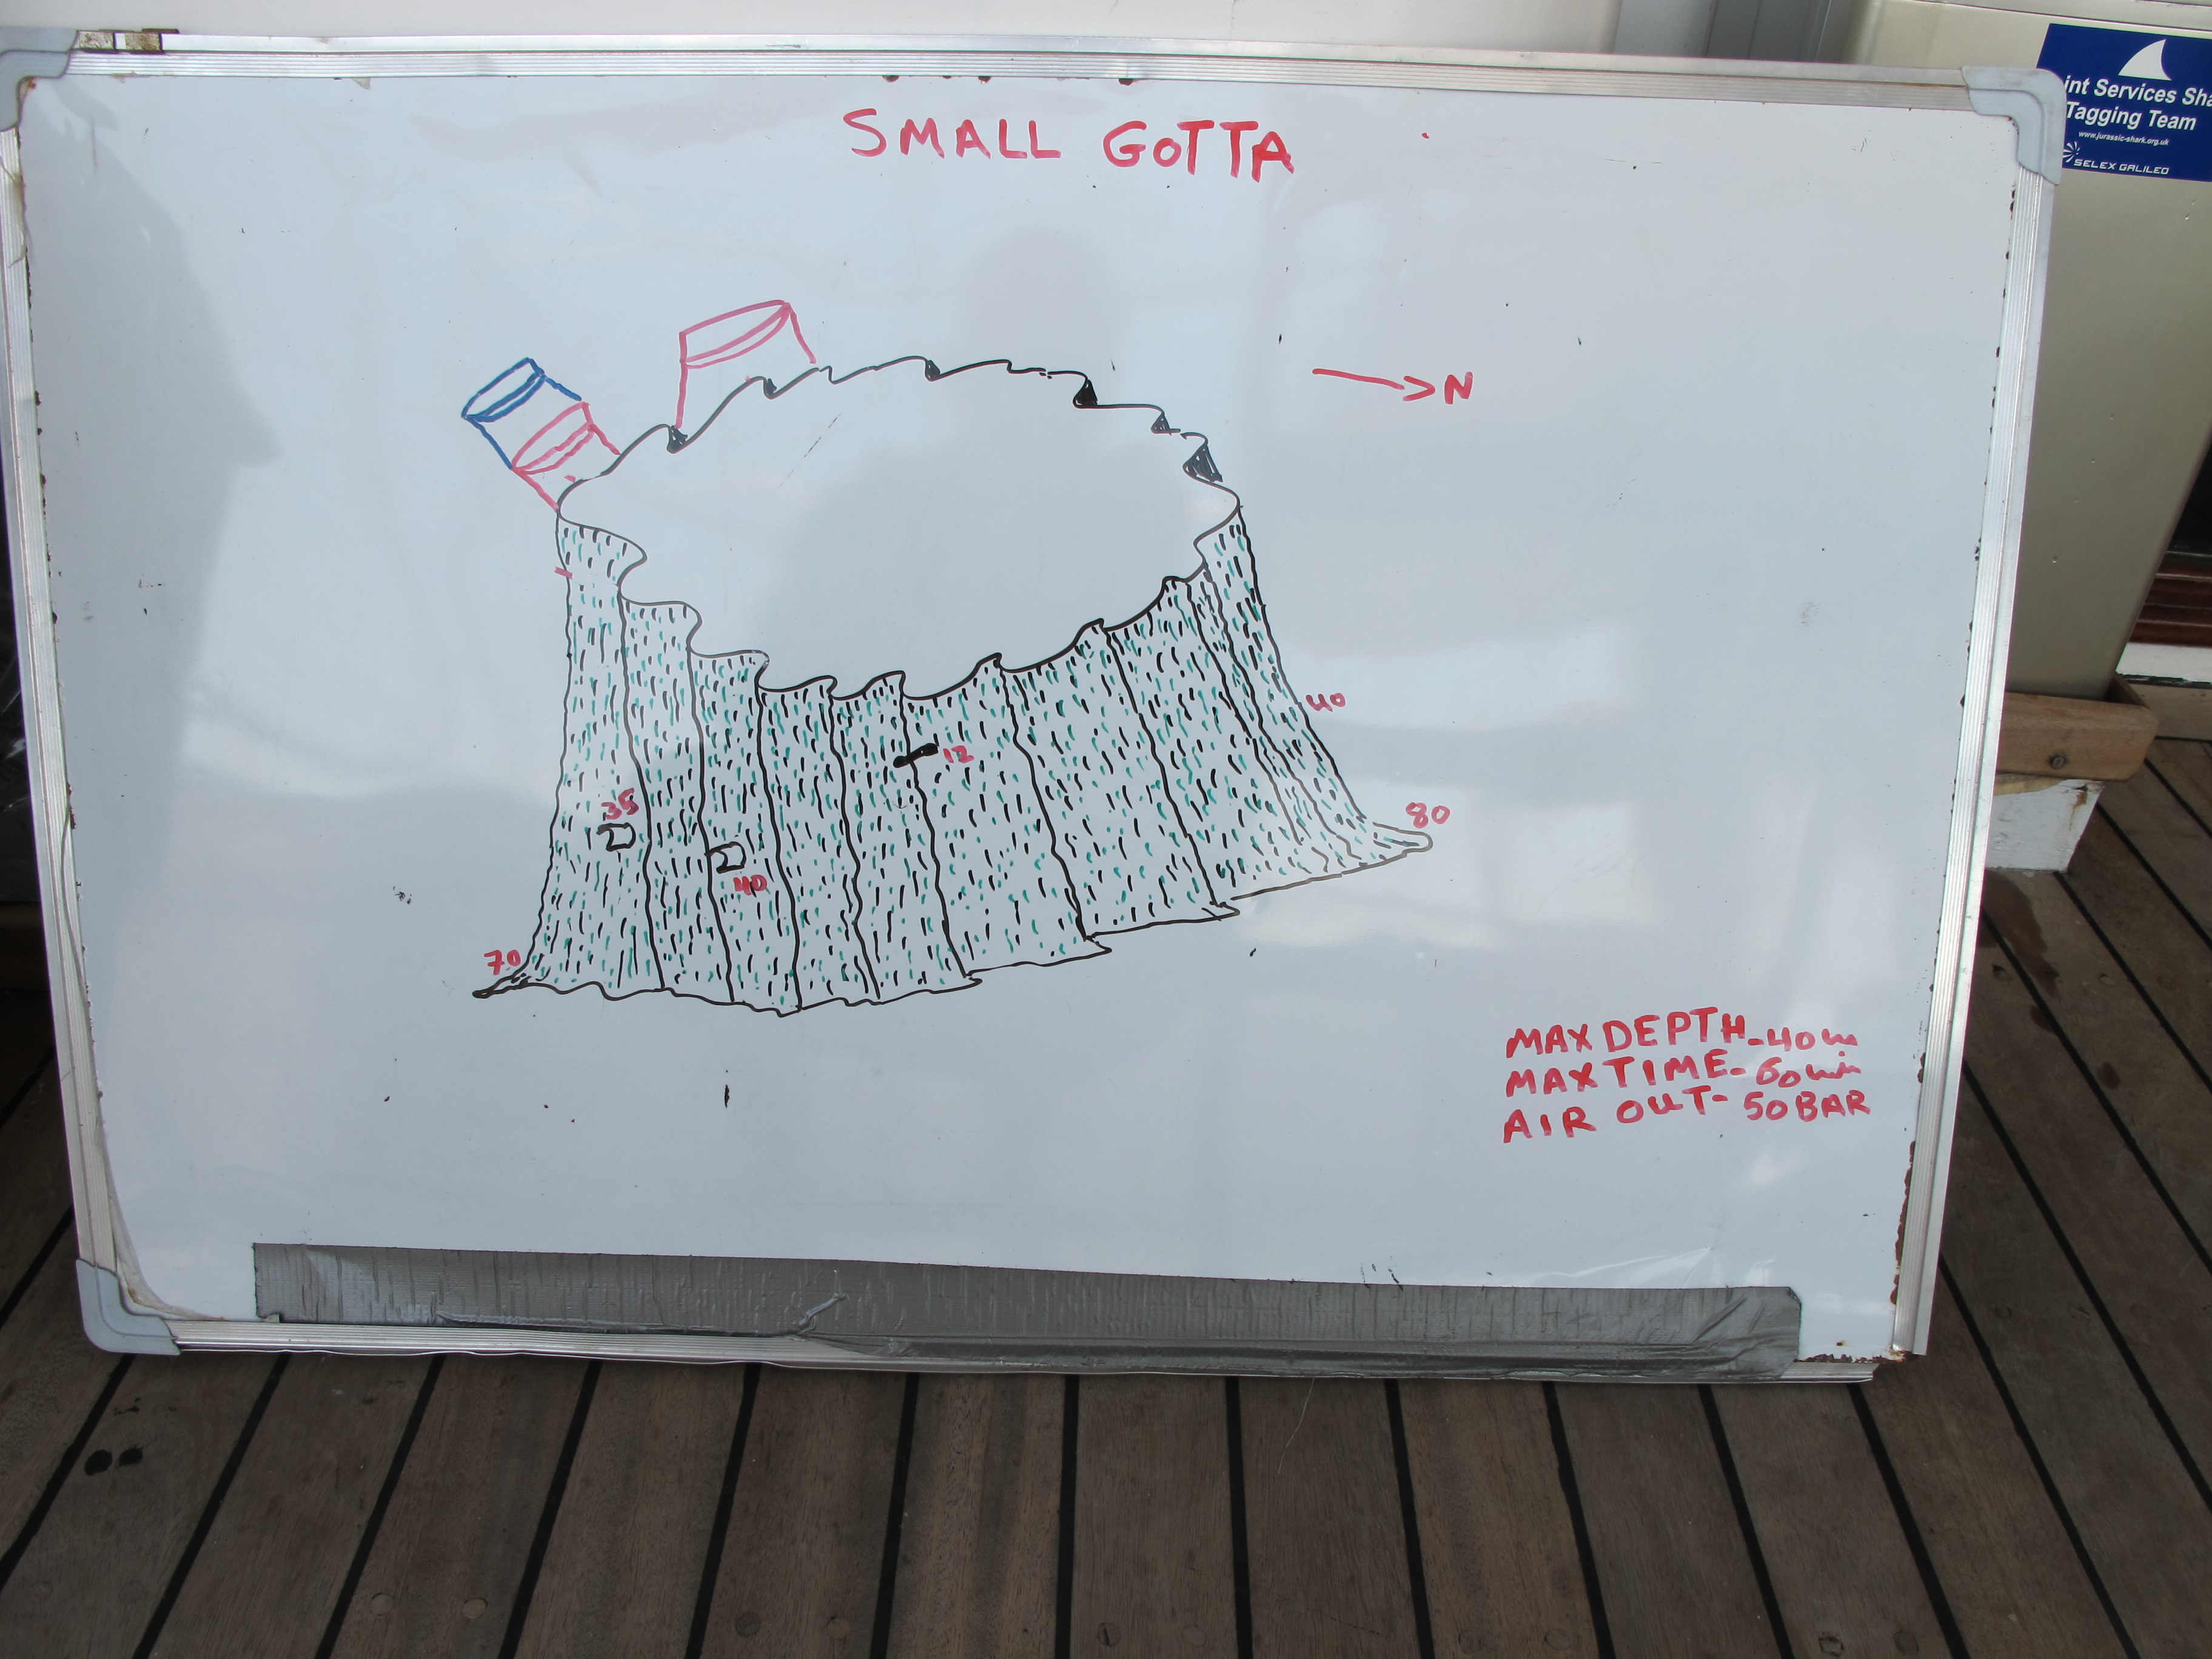 SMALL GOTTA
int Services Sha
Tagging Team
www.jurassic-shark.org.uk
SELEX GALILEO
N
40
12
35
80
40
70
MAX DEPTH - 40m
MAX TIME - 60min
AIR OUT - 50 BAR